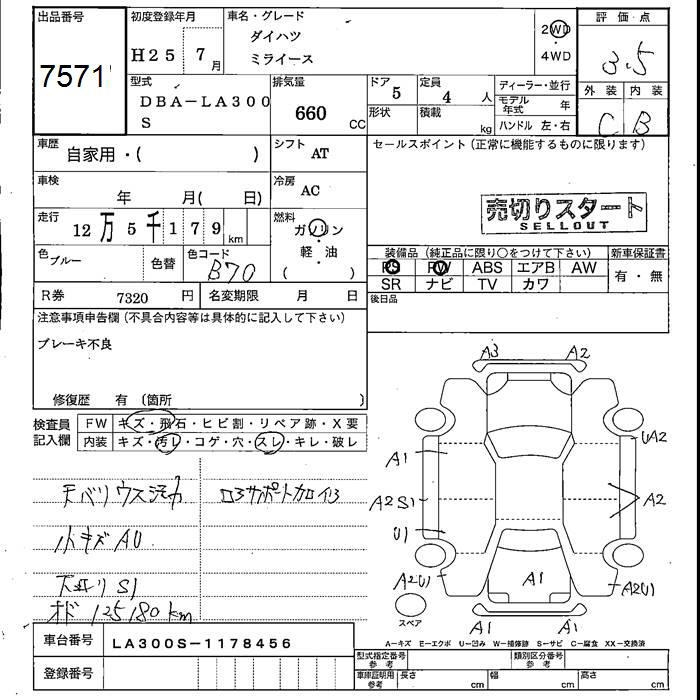 出品番号
7571
初度登録年月
H25 7月
車名・グレード
ダイハツ
ミライース
2WD
・
4WD
評価点
3.5
外装 内装
C B
型式
DBA-LA300
S
排気量
660 cc
ドア 5
定員 4 人
形状
積載 kg
ディーラー・並行
モデル年式 年
ハンドル 左・右
車歴
自家用・( )
シフト
AT
セールスポイント (正常に機能するものに限ります)
車検
年 月( 日)
冷房
AC
売切りスタート
SELLOUT
走行
12万5千179km
燃料
ガソリン
軽・油
( )
色
ブルー
色替
色コード
B70
装備品 (純正品に限り○をつけて下さい)
PS PW ABS エアB AW
SR ナビ TV カワ
新車保証書
有・無
R券 7320 円
名変期限 月 日
後日品
注意事項申告欄 (不具合内容等は具体的に記入して下さい)
ブレーキ不良
修復歴 有 〔箇所 〕
検査員
記入欄
FW キズ・飛石・ヒビ割・リペア跡・X要
内装 キズ・汚レ・コゲ・穴・スレ・キレ・破レ
小キズ AU
S1
オド 125180km
A3 A2
A1
UA2
A2S1
A2
U1
A2U1
A1
A2U1
スペア
A1 A1
A-キズ E-エクボ U-凹み W-補修跡 S-サビ C-腐食 XX-交換済
車台番号
LA300S-1178456
登録番号
型式指定番号
参考
類別区分番号
参考
車庫証明用
参考
長さ cm
幅 cm
高さ cm